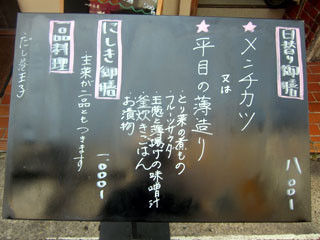 日替り御膳 八〇〇1
★メンチカツ
又は
★平目の薄造り
とり菜の煮もの
フルーツサラダ
玉葱と薄揚げの味噌汁
釜炊きごはん
お漬物
にしき御膳 一、〇〇〇1
主菜が二品ともつきます
一品料理
だし巻玉子